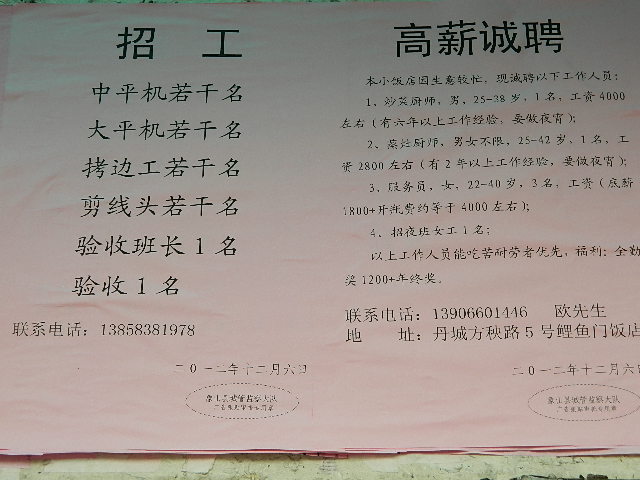 招 工
中平机若干名
大平机若干名
拷边工若干名
剪线头若干名
验收班长1名
验收1名
联系电话：13858381978
二〇一二年十二月六日
象山县城管监察大队
广告张贴审批专用章
高薪诚聘
本小饭店因生意较忙，现诚聘以下工作人员：
1、炒菜厨师，男，25-38岁，1名，工资4000
左右（有六年以上工作经验，要做夜宵）；
2、蒸灶厨师，男女不限，25-42岁，1名，工
资2800左右（有2年以上工作经验，要做夜宵）；
3、服务员，女，22-40岁，3名，工资（底薪
1800+开瓶费约等于4000左右）；
4、招夜班女工1名；
以上工作人员能吃苦耐劳者优先，福利：全勤
奖1200+年终奖。
联系电话：13906601446 欧先生
地 址：丹城方秧路5号鲤鱼门饭店
二〇一二年十二月六日
象山县城管监察大队
广告张贴审批专用章